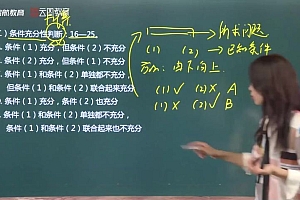 条件充分性判断：16—25
条件（1）充分，但条件（2）不充分
条件（2）充分，但条件（1）不充分
条件（1）和条件（2）单独都不充分，
但条件（1）和条件（2）联合起来充分
条件（1）充分，条件（2）也充分
条件（1）和条件（2）单独都不充分，
条件（1）和条件（2）联合起来也不充分
所求问题
（1） （2）→已知条件
方向：由下向上.
（1）✓ （2）✗ A
（1）✗ （2）✓ B